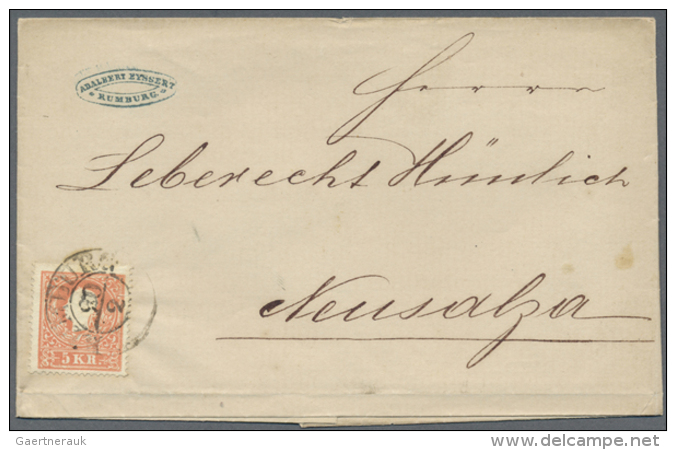 ADALBERT EYSSERT
* RUMBURG. *
Herrn
Leberecht Hünlich
Neusalza
5 KR.
Gaertnerauk
delcampe.net